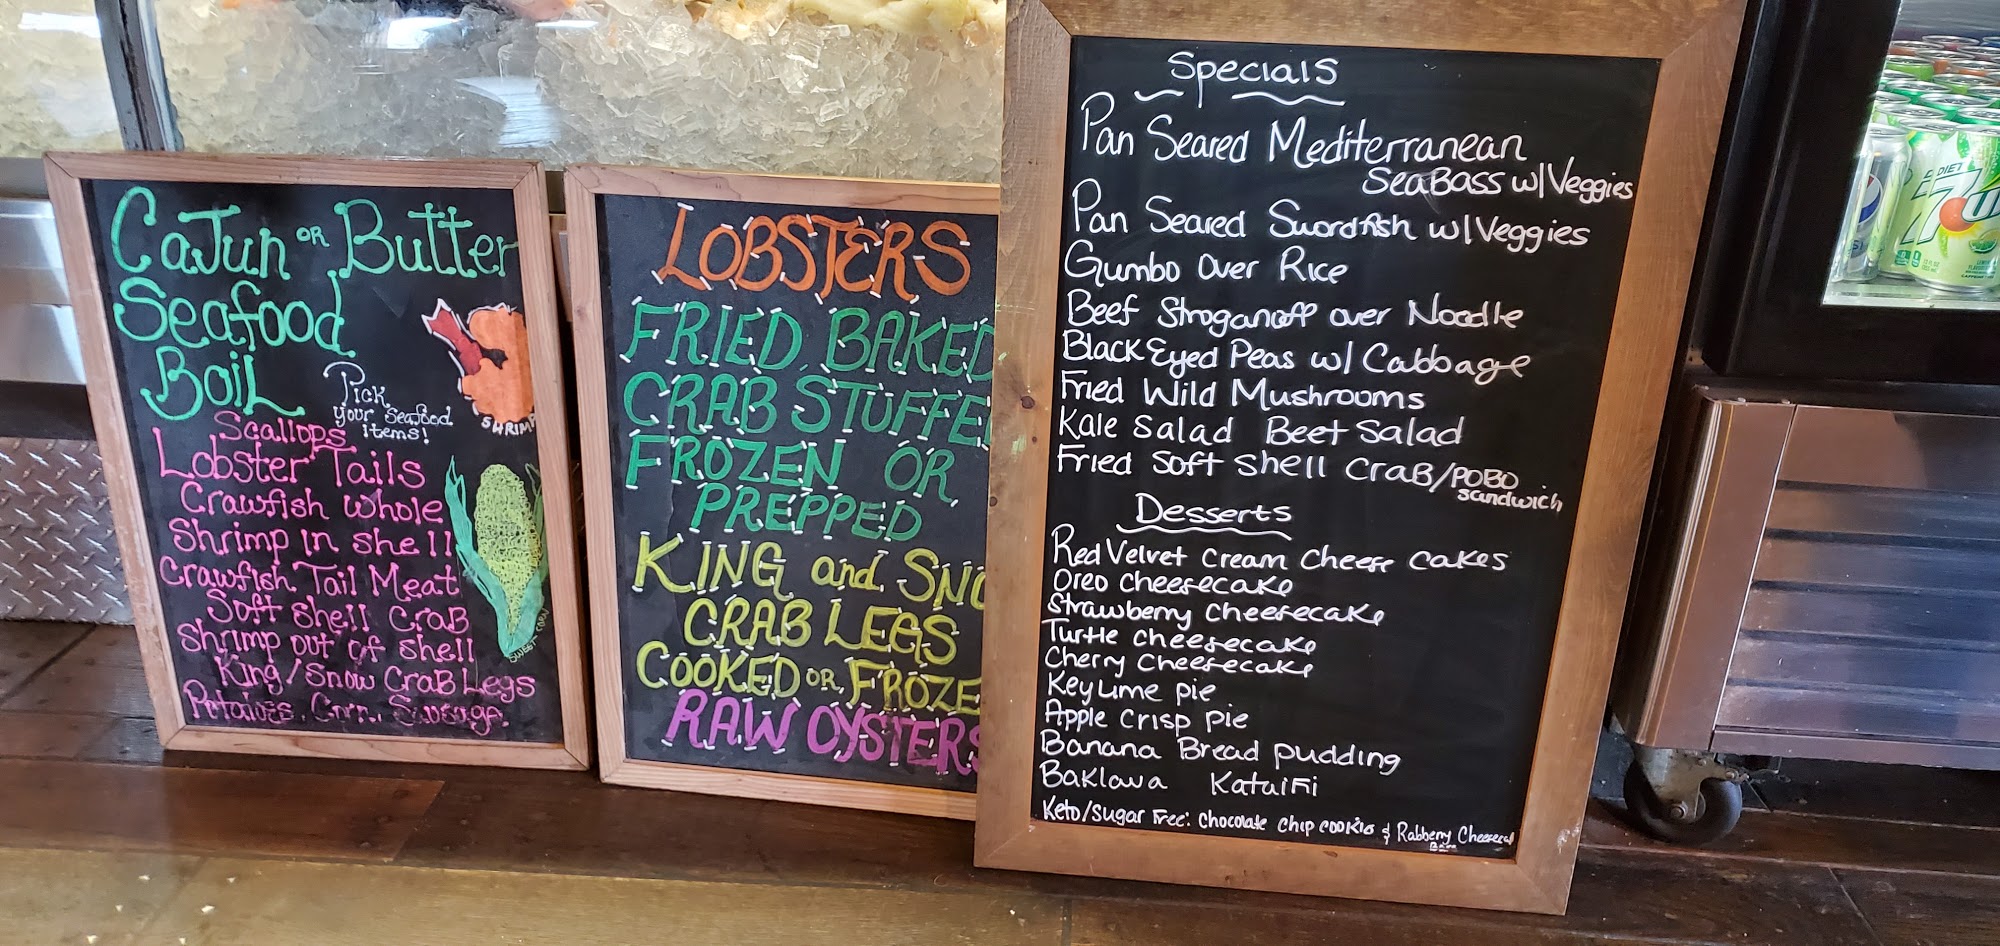 Cajun or Butter
Seafood
Boil
Pick
your Seafood
items!
SHRIMP
Scallops
Lobster Tails
Crawfish whole
Shrimp in shell
Crawfish Tail Meat
Soft shell CraB
shrimp out of shell
King/Snow CraB Legs
Potatoes, Corn, Sausage.
SWEET CORN
LOBSTERS
FRIED, BAKED
CRAB STUFFE
FROZEN OR
PREPPED
KING and SNO
CRAB LEGS
COOKED OR FROZE
RAW OYSTERS
Specials
Pan Seared Mediterranean
SeaBass w/Veggies
Pan Seared Swordfish w/Veggies
Gumbo Over Rice
Beef Stroganoff over Noodle
Black Eyed Peas w/ Cabbage
Fried Wild Mushrooms
Kale Salad Beet Salad
Fried Soft Shell CraB/POBO
Sandwich
Desserts
Red Velvet Cream Cheese Cakes
Oreo Cheesecake
Strawberry Cheesecake
Turtle Cheesecake
Cherry Cheesecake
Key Lime pie
Apple Crisp pie
Banana Bread pudding
Baklava Kataifi
Keto/Sugar Free: Chocolate Chip cookie & Rabberry Cheesecal
DIET
7U